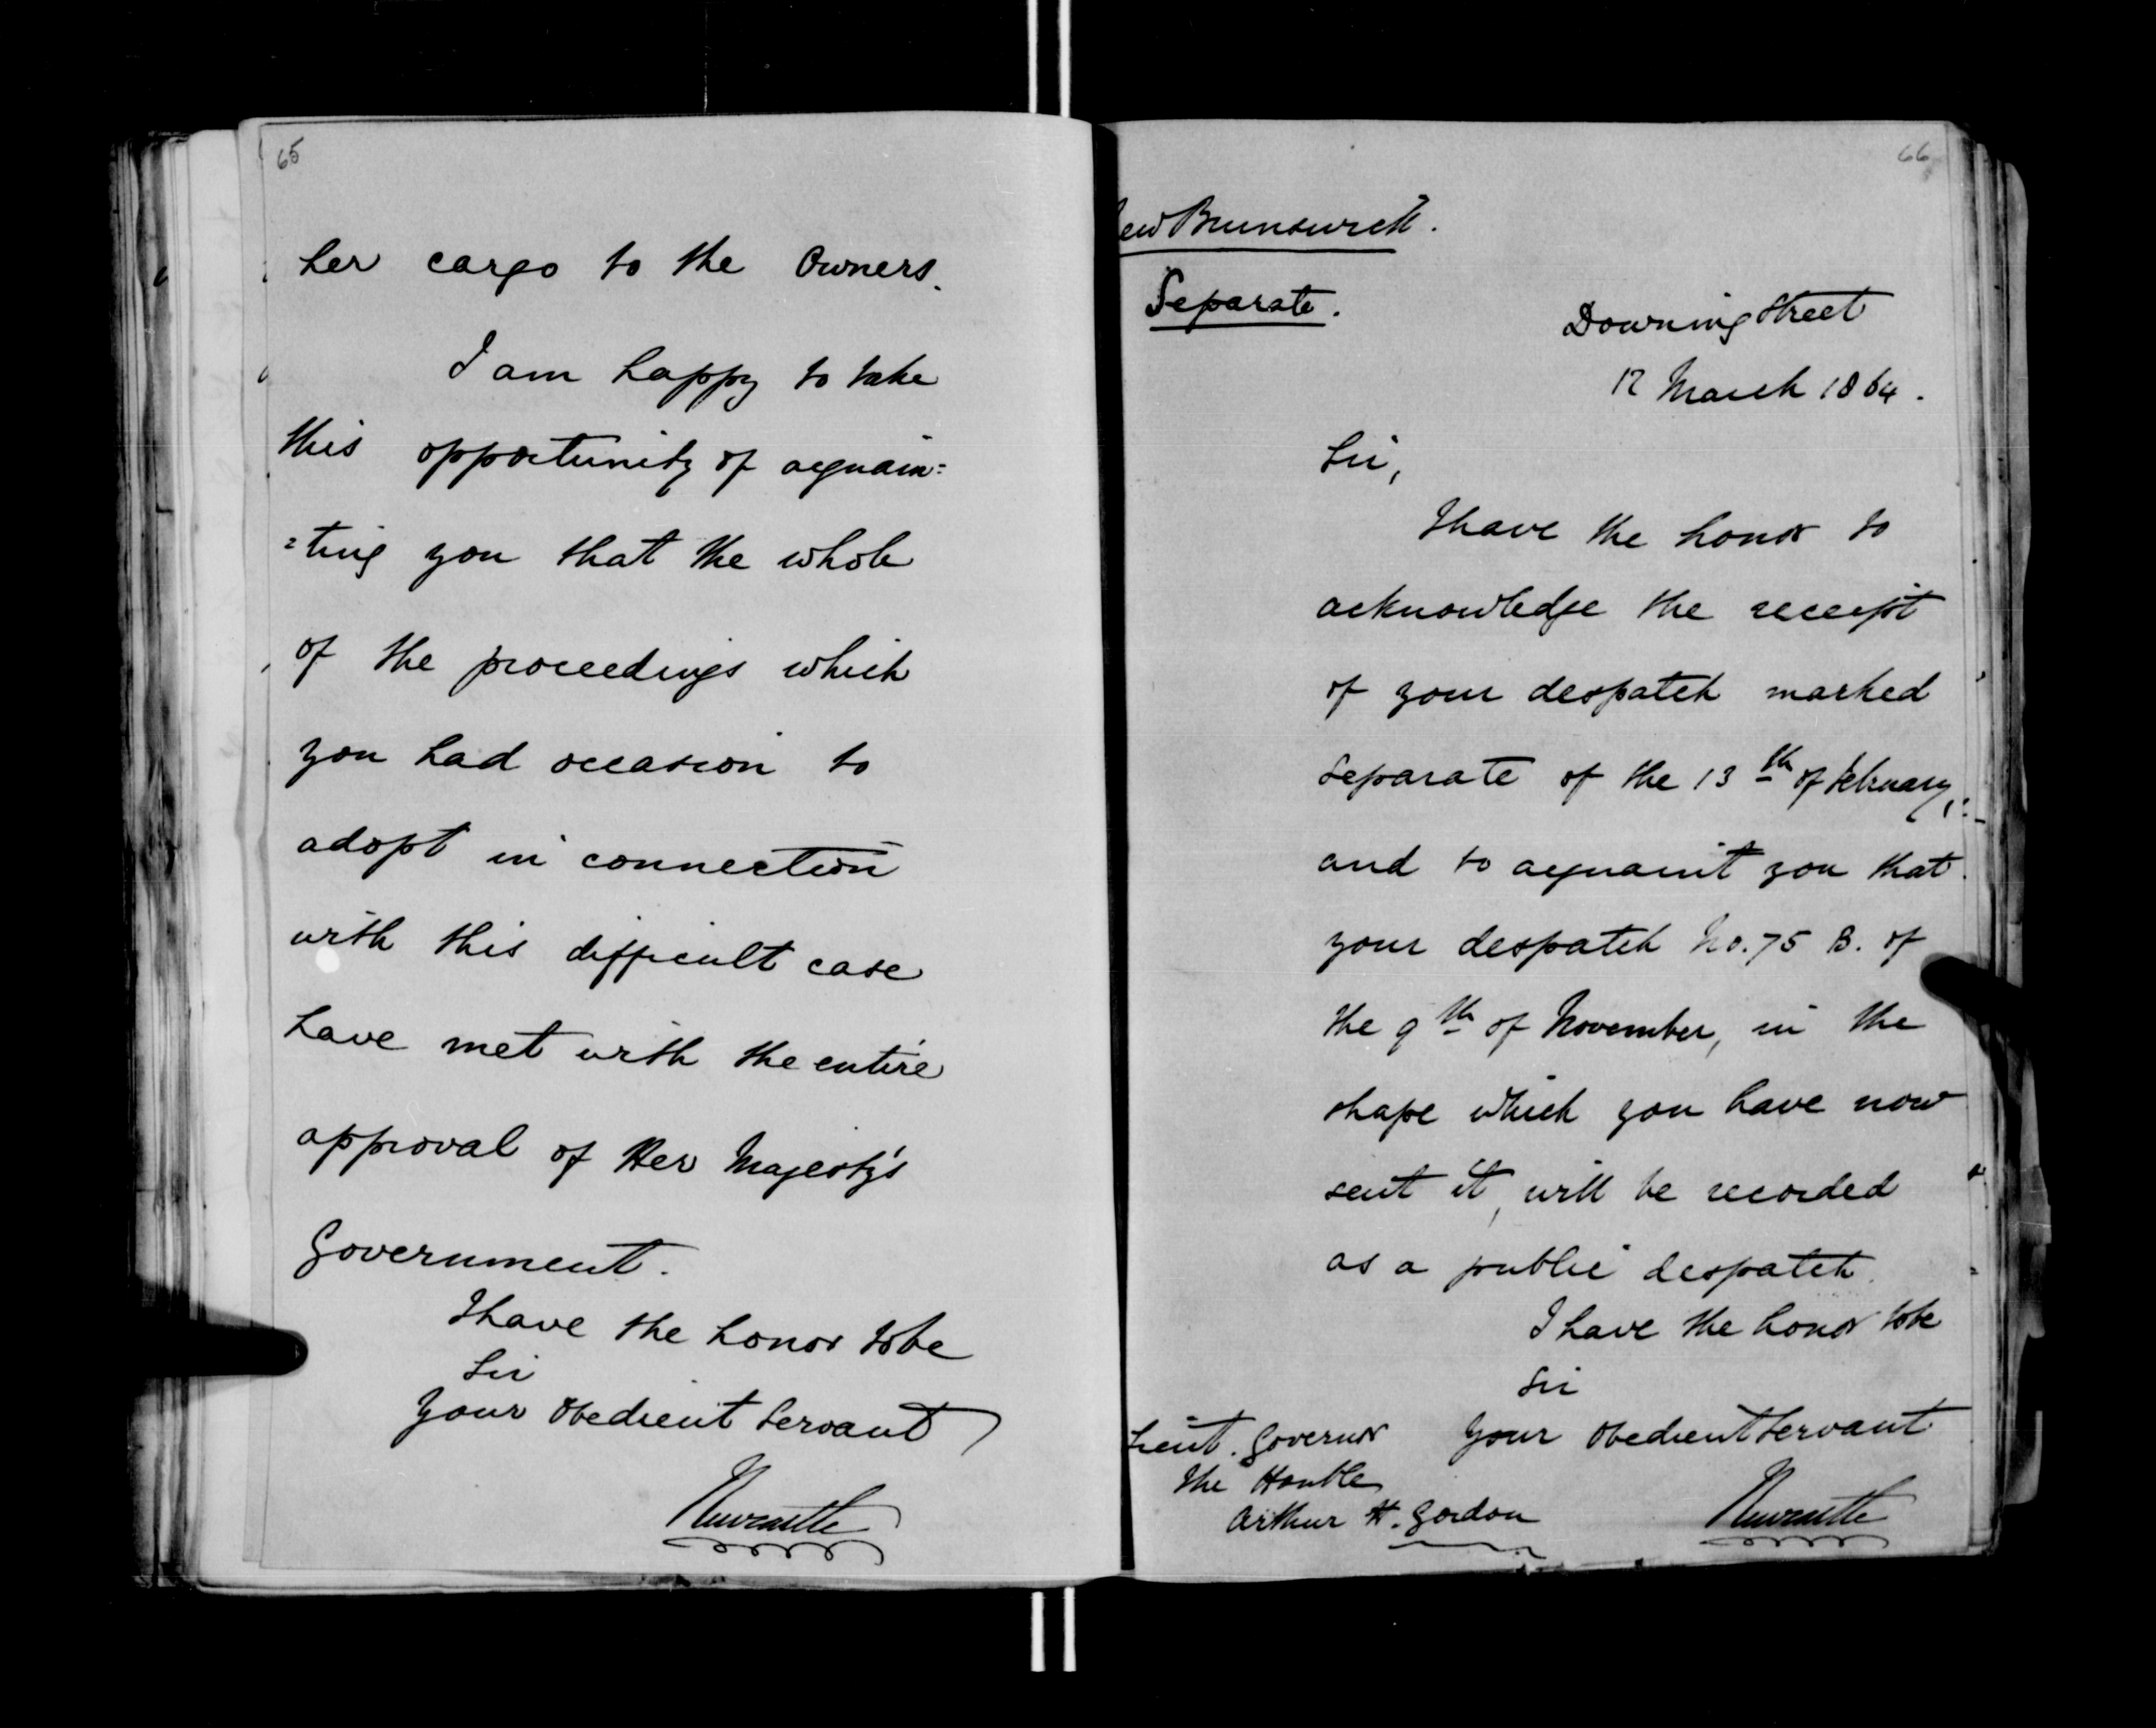 65
her cargo to the Owners.
I am happy to take
this opportunity of acquain=
=ting you that the whole
of the proceedings which
you had occasion to
adopt in connection
with this difficult case
have met with the entire
approval of Her Majesty's
Government.
I have the honor to be
Sir
Your Obedient Servant
Newcastle
66
ew Brunswick.
Separate.
Downing Street
12 March 1864.
Sir,
I have the honor to
acknowledge the receipt
of your despatch marked
separate of the 13th of February,
and to acquaint you that
your despatch No. 75 B. of
the 9th of November, in the
shape which you have now
sent it, will be recorded
as a public despatch.
I have the honor to be
Sir
Your Obedient Servant
Lieut. Governor
The Honble
Arthur H. Gordon
Newcastle